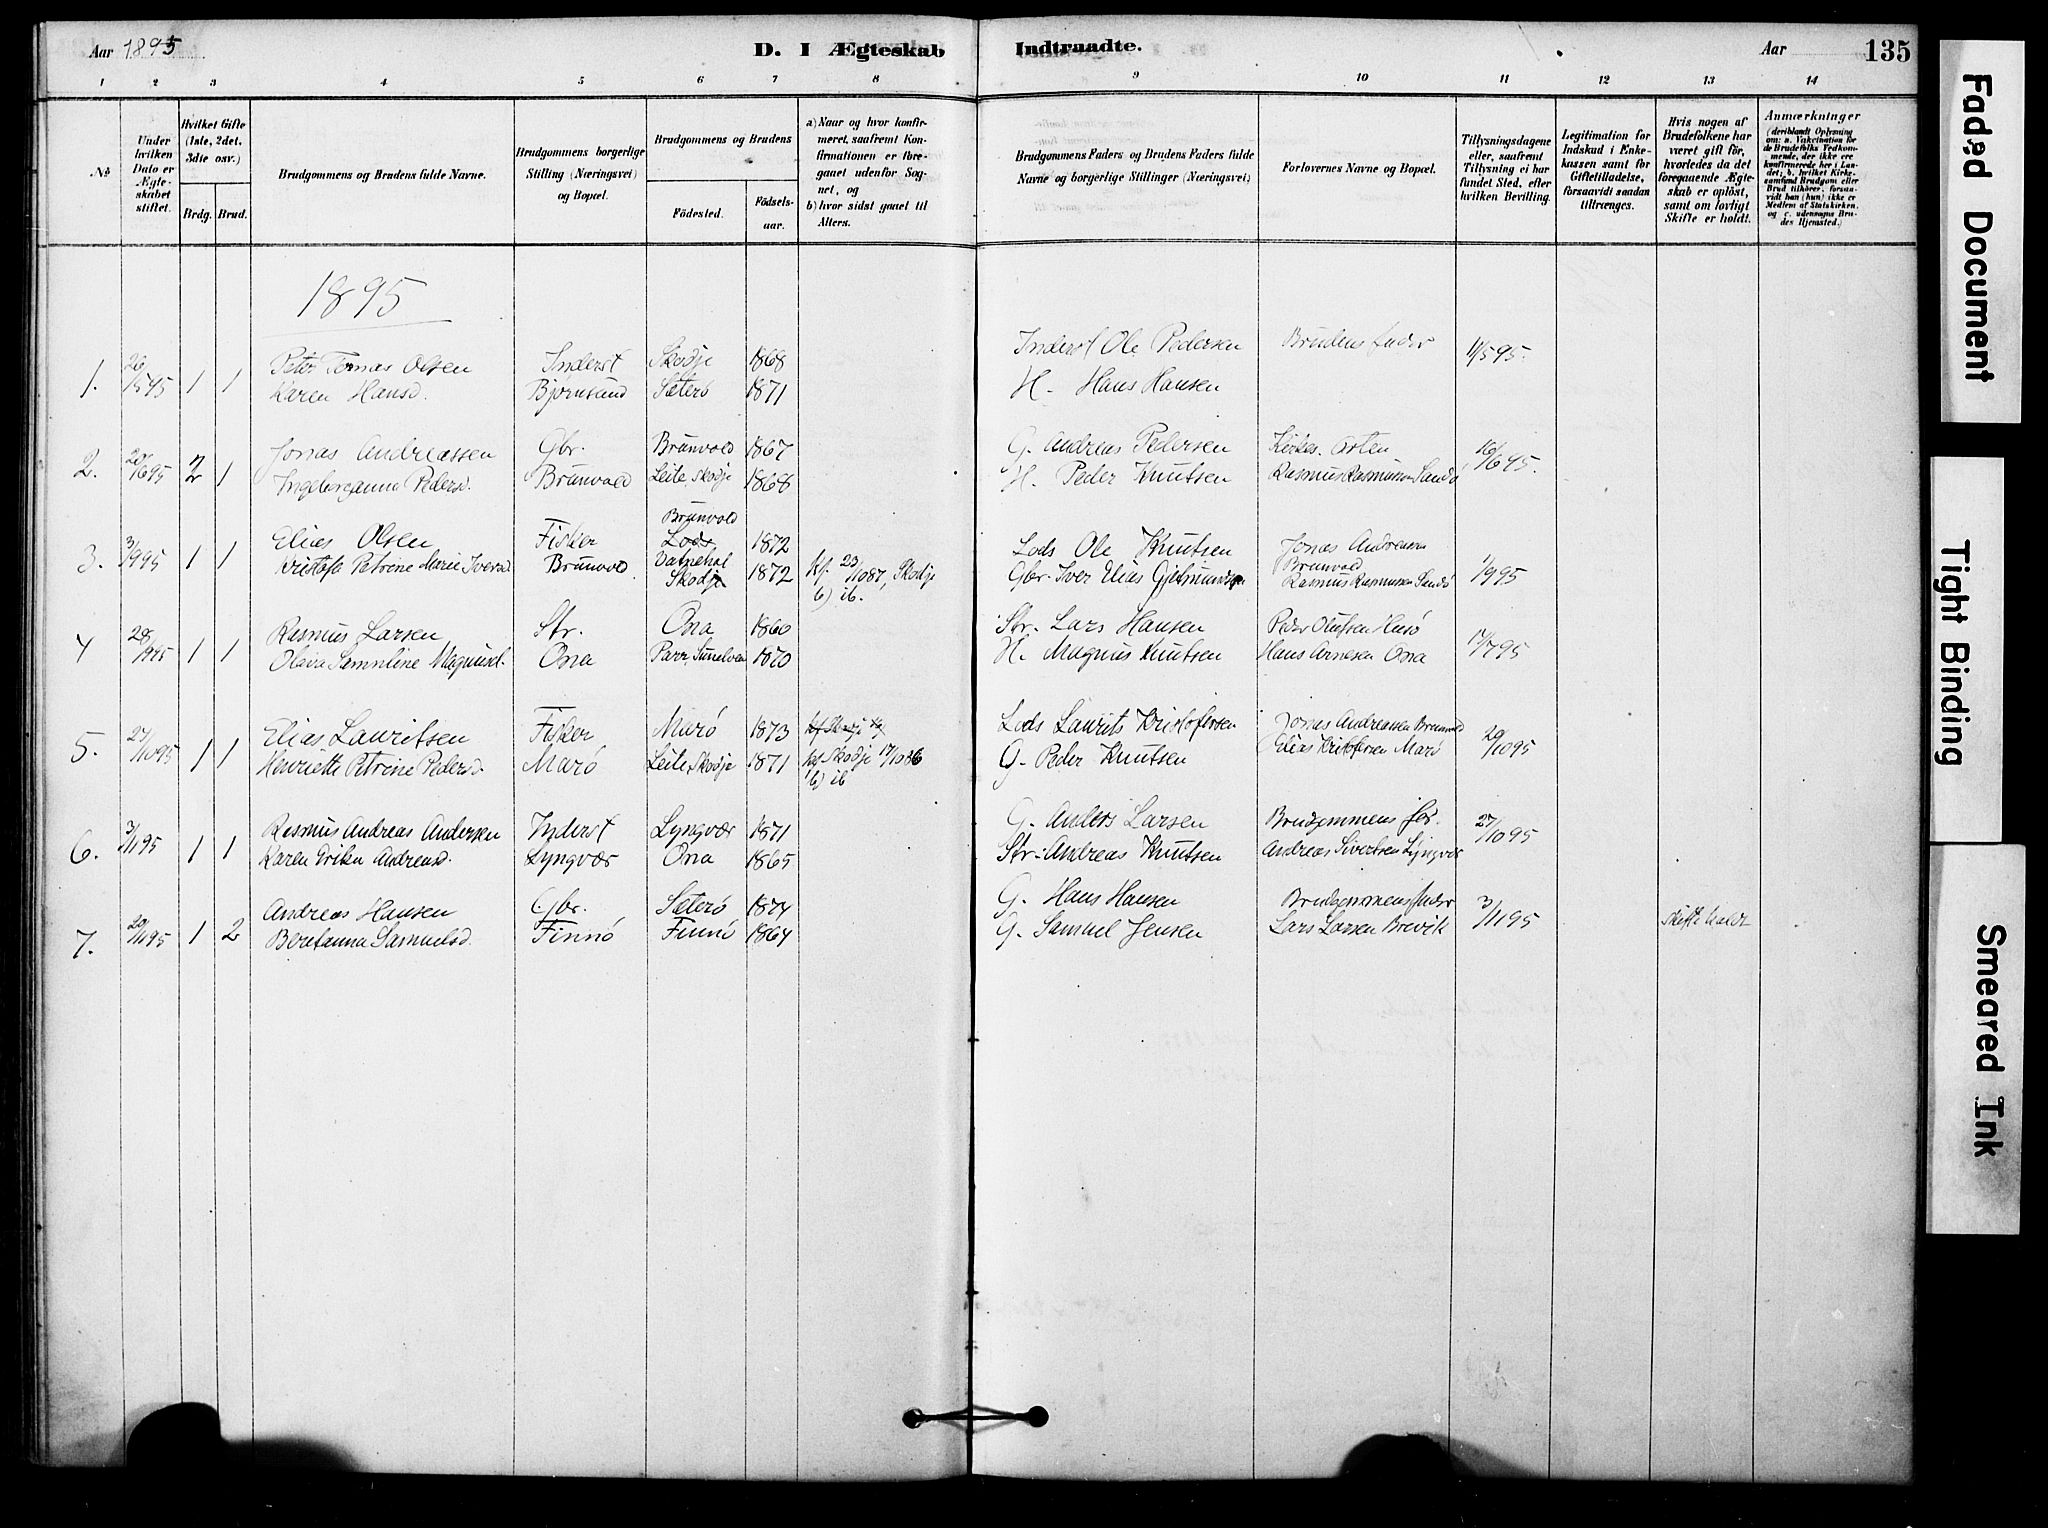 Aar 1895
D. I Ægteskab Indtraadte.
Aar
135
1 2 3 4 5 6 7 8 9 10 11 12 13 14
No
Under hvilken Dato er Ægteskabet stiftet.
Hvilket Gifte (1ste, 2det, 3die osv.)
Brdg. Brud.
Brudgommens og Brudens fulde Navne.
Brudgommens borgerlige Stilling (Næringsvei) og Bopæl.
Brudgommens og Brudens
Fødested.
Fødselsaar.
a) Naar og hvor konfirmeret, saafremt Konfirmationen er foregaaet udenfor Sognet, og
b) hvor sidst gaaet til Alters.
Brudgommens Faders og Brudens Faders fulde Navne og borgerlige Stillinger (Næringsvei)
Forlovernes Navne og Bopæl.
Tillysningsdagene eller, saafremt Tillysning ei har fundet Sted, efter hvilken Bevilling.
Legitimation for Indskud i Enkekassen samt for Giftetilladelse, forsaavidt saadan tiltrænges.
Hvis nogen af Brudefolkene har været gift før, hvorledes da det foregaaende Ægteskab er opløst, samt om lovligt Skifte er holdt.
Anmærkninger
(deriblandt Oplysning om: a. Vakcination for de Brudefolks Vedkommende, der ikke ere konfirmerede her i Landet; b. hvilket Kirkesamfund Brudgom eller Brud tilhører, forsaavidt han (hun) ikke er Medlem af Statskirken, og c. udensogns Brudes Hjemsted.)
1895
1. 26/5 95 1 1 Peter Tomas Olsen Inderst Skodje 1868 Inderst Ole Pedersen Brudens 1/5 95.
Karen Hansd. Bjørnsund Sæterø 1871 H. Hans Hansen
2. 20/6 95 2 1 Jonas Andreassen Gbr. Brunvold 1867 G. Andreas Pedersen Kirkes. Osten 16/6 95.
Ingeborganna Pedersd. Brunvold Leite Skodje 1868 H. Peder Knutsen Rasmus Rasmussen Sandø
Brunvold
3. 3/9 95 1 1 Elias Olsen Fisker Lods 1872 Lods Ole Knutsen Jonas Andreassen
Petrine Marie Iversd Brunvold Vatnehol Skodje 1872 kf. 23/10 87, Skodje Gbr. Iver Elias Brunvold Rasmus Rasmussen Sandø 1/9 95
b) ib.
4 28/9 95 1 1 Rasmus Larsen Str. Ona 1860 Str. Lars Hansen Peder Olufsen Husø 17/7 95
Olava Magnusd. Ona Sunelven 1870 H. Magnus Knutsen Hans Arnesen Ona
5. 27/10 95 1 1 Elias Lauritsen Fisker Marø 1873 kf Skodje Lods Laurits Kristofersen Jonas Andreassen Brunvold 20/10 95
Henriette Petrine Pedersd. Marø Leite, Skodje 1871 kf Skodje 17/10 86 G. Peder Knutsen Elias Kristofersen Marø
b) ib
6. 3/11 95 1 1 Rasmus Andreas Andersen Inderst Lyngvær 1871 G. Anders Larsen Brudgommens far. 27/10 95
Karen Erikke Andreasd. Lyngvær Ona 1865 Str. Andreas Knutsen Andreas Sivertsen Lyngvær
7. 20/11 95 1 2 Andreas Hansen Gbr. Sæterø 1874 G. Hans Hansen Brudgommens 3/11 95 Skifte holdt
Beretanna Samuelsd. Finnø Finnø 1864 G. Samuel Jensen Lars Larsen Brevik
Faded Document
Tight Binding
Smeared Ink